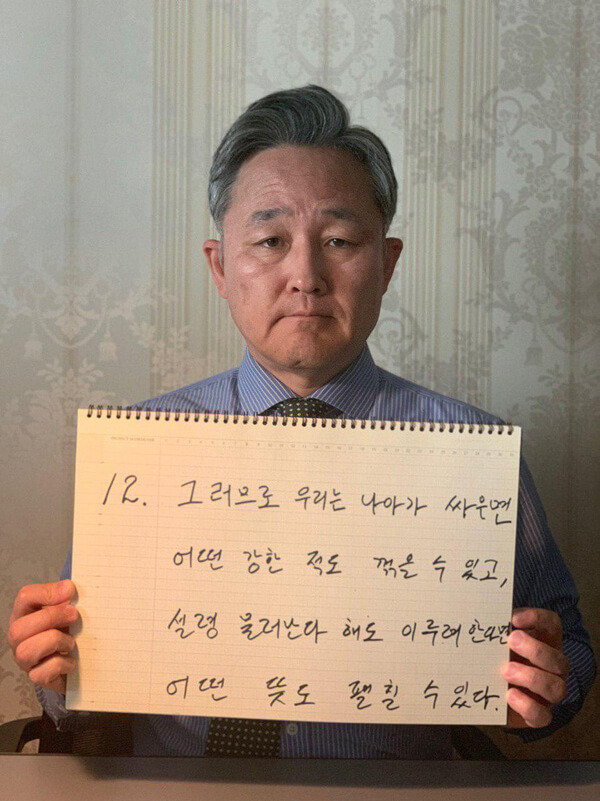 12. 그러므로 우리는 나아가 싸우면
어떤 강한 적도 꺾을 수 있고,
설령 물러난다 해도 이루려 한다면
어떤 뜻도 펼칠 수 있다.